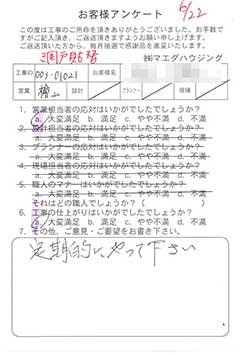 お客様アンケート
6/22
この度は工事のご用命を頂きありがとうございました。お手数で
すがご記入頂き、ご返送頂きますようお願い申し上げます。
ご返送頂いた方から、毎月抽選で感謝品を進呈いたします。
㈱マエダハウジング
工事のID 003-01021 お客様名
営業 檜山 設計 プランナー 現場
1. 営業担当者の応対はいかがでしたでしょうか?
a. 大変満足 b. 満足 c. やや不満 d. 不満
2. 設計担当者の応対はいかがでしたでしょうか?
a. 大変満足 b. 満足 c. やや不満 d. 不満
3. プランナーの応対はいかがでしたでしょうか?
a. 大変満足 b. 満足 c. やや不満 d. 不満
4. 現場担当者の応対はいかがでしたでしょうか?
a. 大変満足 b. 満足 c. やや不満 d. 不満
5. 職人のマナーはいかがでしたでしょうか?
a. 大変満足 b. 満足 c. やや不満 d. 不満
それはどの職人でしょうか?( )
6. 工事の仕上がりはいかがでしたでしょうか?
a. 大変満足 b. 満足 c. やや不満 d. 不満
7. その他、ご意見・ご要望をお書き下さい。
定期的にやって下さい